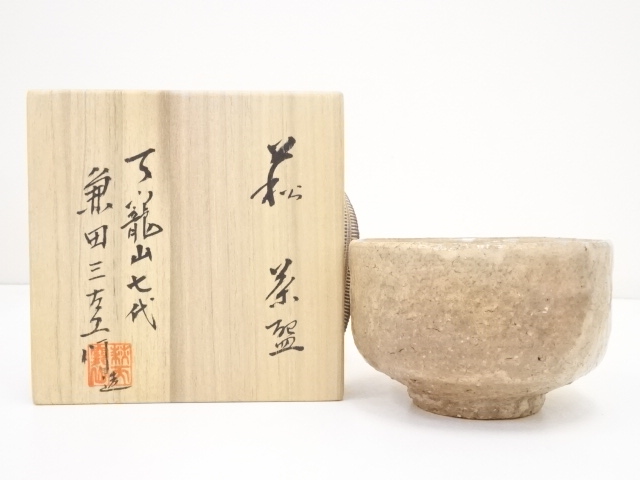 萩 茶盌
天寵山七代
兼田三左エ門造